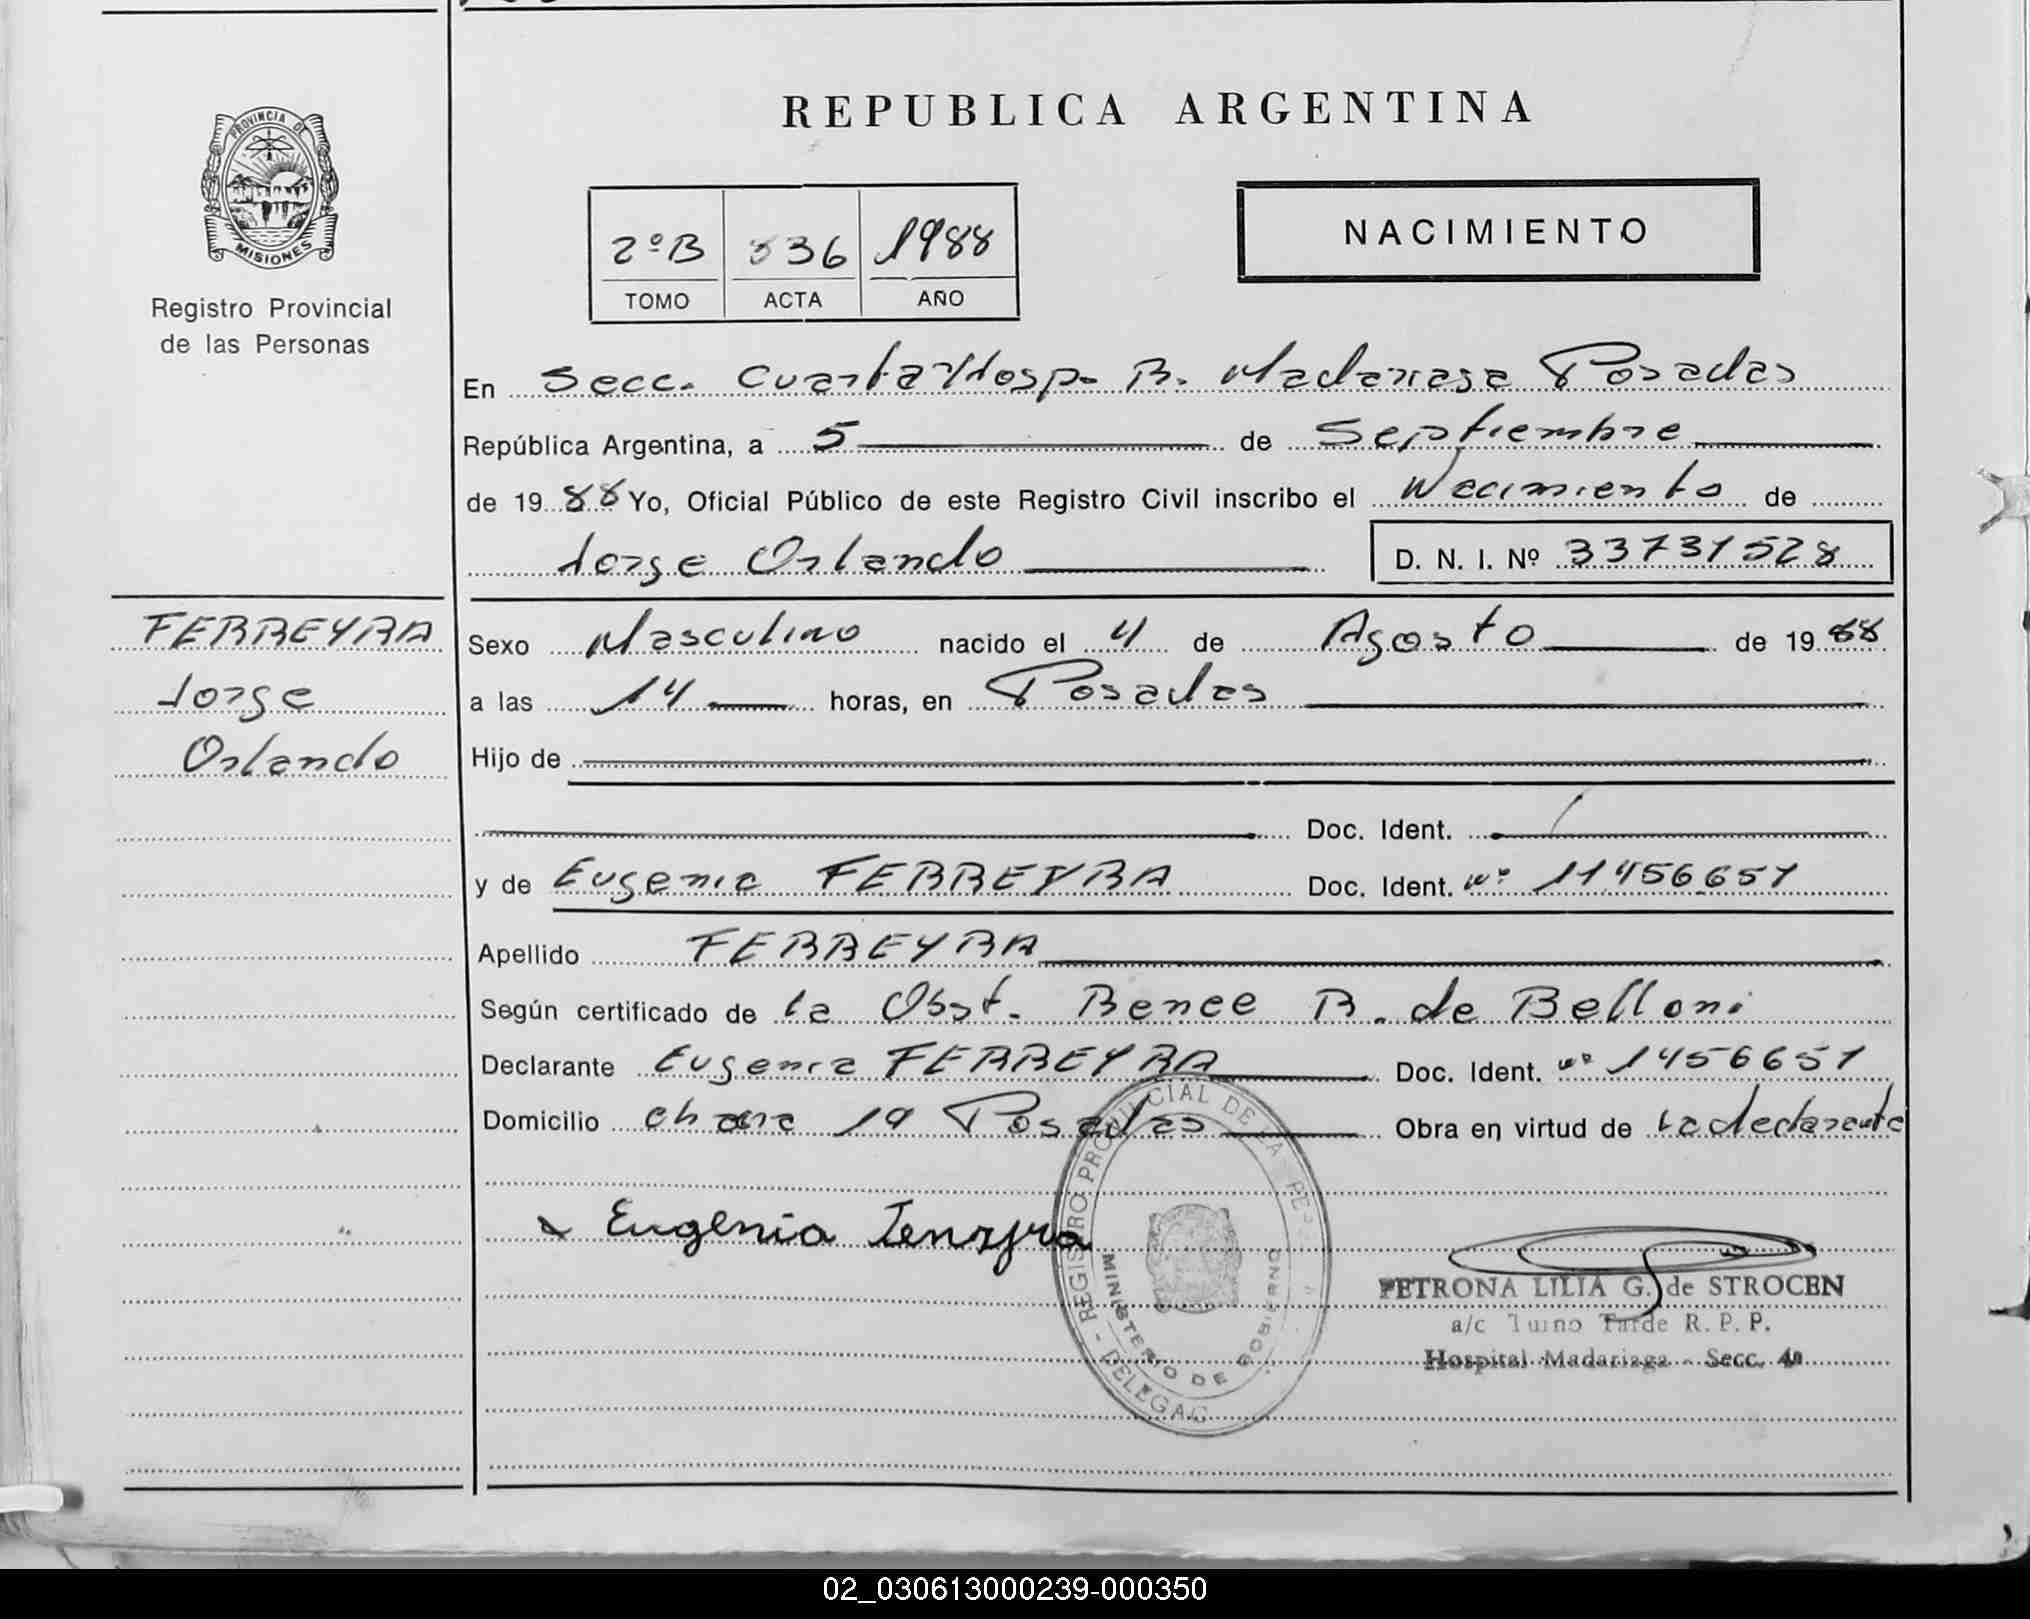 REPUBLICA ARGENTINA
PROVINCIA DE
MISIONES
Registro Provincial
de las Personas
2ºB 836 1988
TOMO ACTA AÑO
NACIMIENTO
En Secc. Cuarta Hosp. R. Madariaga Posadas
República Argentina, a 5 de Septiembre
de 1988 Yo, Oficial Público de este Registro Civil inscribo el Nacimiento de
Jorge Orlando D. N. I. Nº 33731528
FERREYRA
Jorge
Orlando
Sexo Masculino nacido el 4 de Agosto de 1988
a las 14 horas, en Posadas
Hijo de
Doc. Ident.
y de Eugenia FERREYRA Doc. Ident. nº 11.456.651
Apellido FERREYRA
Según certificado de la Obst. Renee B. de Belloni
Declarante Eugenia FERREYRA Doc. Ident. nº 1456651
Domicilio 19 Posadas Obra en virtud de la declarante
Eugenia Ferreyra
REGISTRO PROVINCIAL DE LA PERS
MINISTERIO DE GOBIERNO
DELEGAC
PETRONA LILIA G. de STROCEN
a/c Turno Tarde R. P. P.
Hospital Madariaga - Secc. 4a
02_030613000239-000350